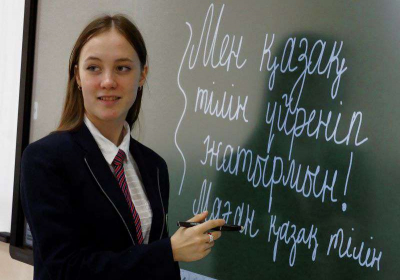 Мен қазақ
тілін үйреніп
жатырмын!
Маған қазақ тілін